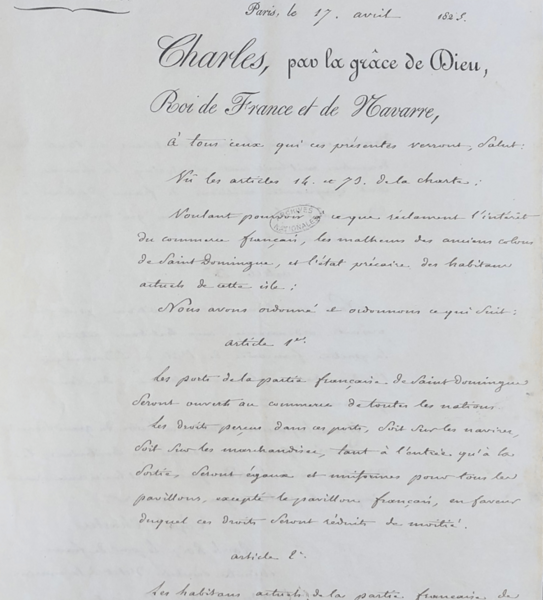 Paris, le 17. avril 1825.
Charles, par la grâce de Dieu,
Roi de France et de Navarre,
À tous ceux qui ces présentes verront, Salut:
Vu les articles 14. et 73. de la charte;
Voulant pourvoir à ce que réclament l'intérêt
ARCHIVES NATIONALES
du commerce français, les malheurs des anciens colons
de Saint Domingue, et l'état précaire des habitans
actuels de cette isle;
Nous avons ordonné et ordonnons ce qui suit:
article 1er.
Les ports de la partie française de Saint Domingue
seront ouverts au commerce de toutes les nations.
Les droits perçus dans ces ports, soit sur les navires,
soit sur les marchandises, tant à l'entrée qu'à la
sortie, seront égaux et uniformes pour tous les
pavillons, excepté le pavillon français, en faveur
duquel ces droits seront réduits de moitié.
article 2e.
Les habitans actuels de la partie française de